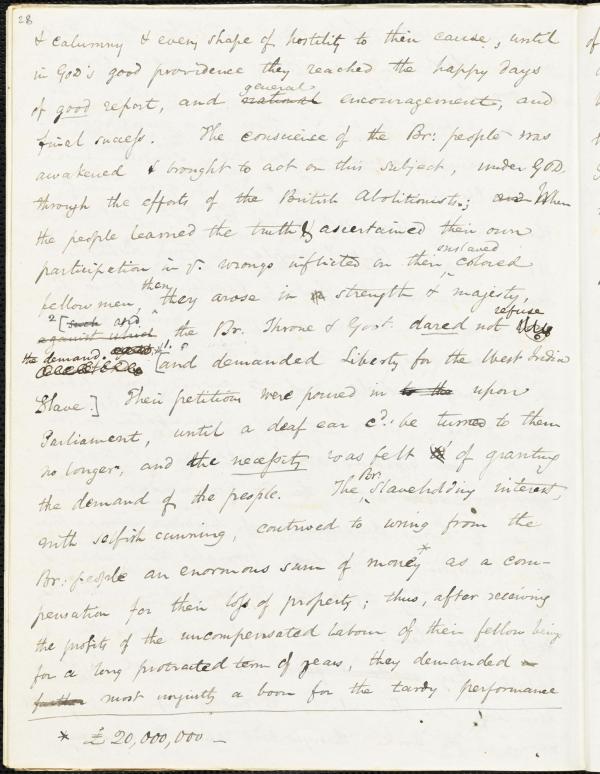 28
& calumny & every shape of hostility to their cause, until
in GOD's good providence they reached the happy days
general
of good report, and national encouragement, and
final success. The conscience of the Br: people was
awakened & brought to act on this subject, under GOD,
through the efforts of the British Abolitionists; When
the people learned the truth & ascertained their own
enslaved
participation in ye. wrongs inflicted on their ^ colored
then
fellow men, ^ they arose in strength & majesty,
2 [such and refuse
against which the Br. Throne & Govt. dared not
the demand. 1. [and demanded Liberty for the West India
Slave.] Their petitions were poured in to the upon
Parliament, until a deaf ear cd. be turned to them
no longer, and the necessity was felt of granting
Br.
the demand of the people. The ^ Slaveholding interest,
with selfish cunning, contrived to wring from the
Br: people an enormous sum of money * as a com-
pensation for their loss of property; thus, after receiving
the profits of the uncompensated labour of their fellow being
for a long protracted term of years, they demanded
further most unjustly a boon for the tardy performance
* £20,000,000 –